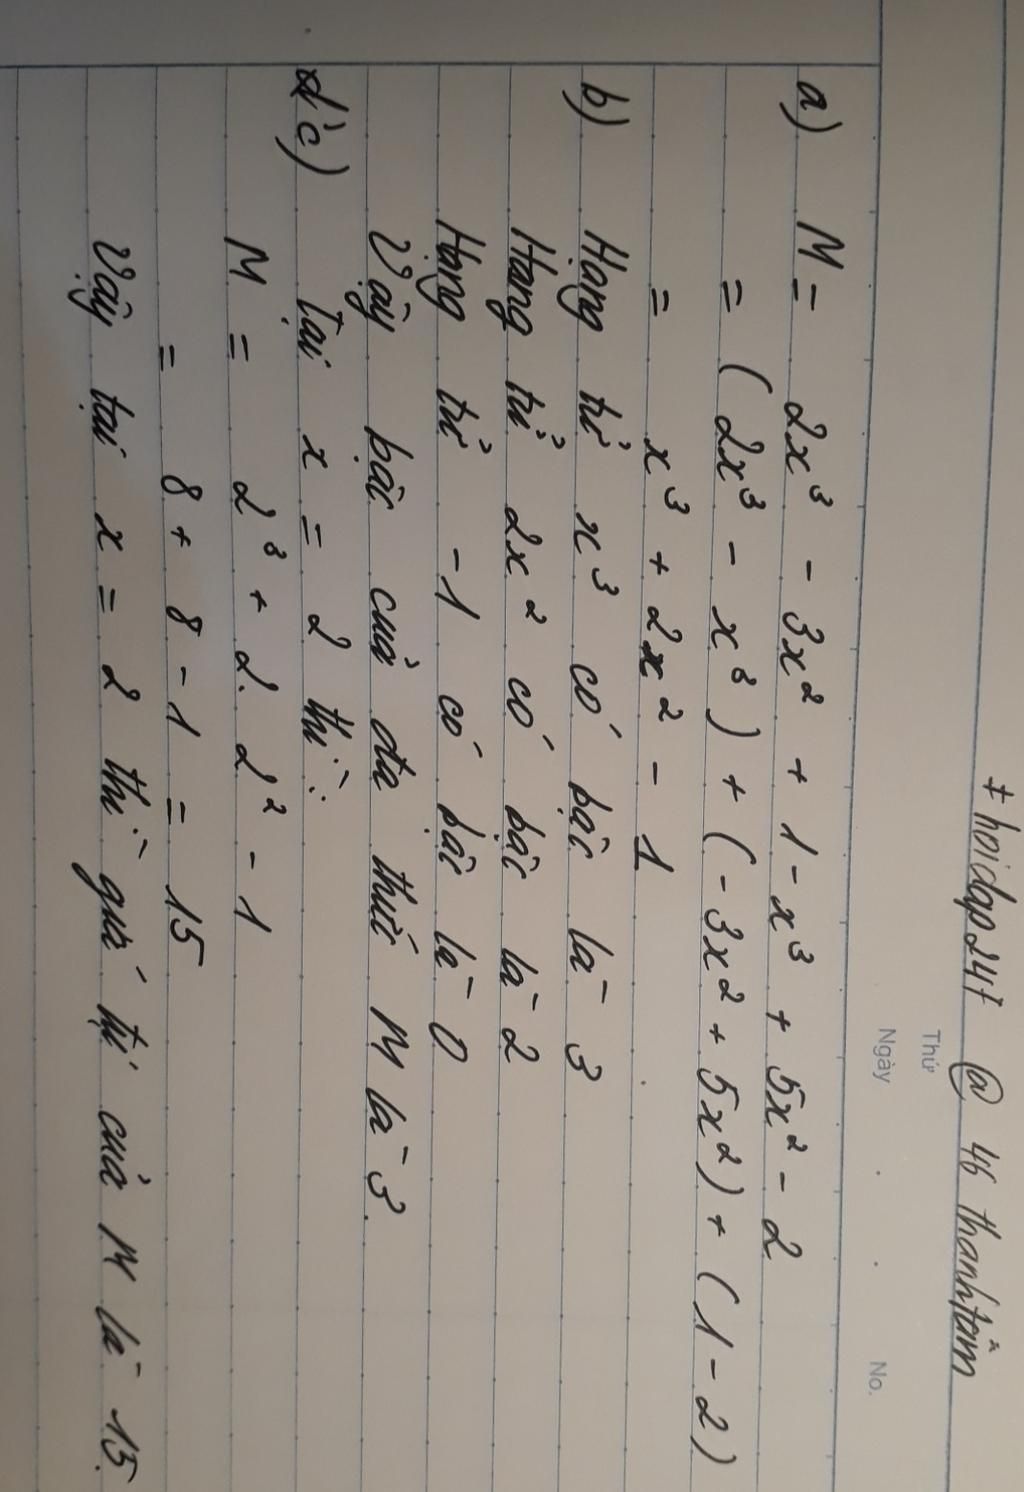 #hoidap247 @ 46 thanhtâm
Thứ
Ngày . . No.
a) M = 2x³ - 3x² + 1 - x³ + 5x² - 2
= (2x³ - x³) + (-3x² + 5x²) + (1 - 2)
= x³ + 2x² - 1
b) Hạng tử x³ có bậc là 3
Hạng tử 2x² có bậc là 2
Hạng tử -1 có bậc là 0
Vậy bậc của đa thức M là 3.
c) Tại x = 2 thì:
M = 2³ + 2. 2² - 1
= 8 + 8 - 1 = 15
Vậy tại x = 2 thì giá trị của M là 15.